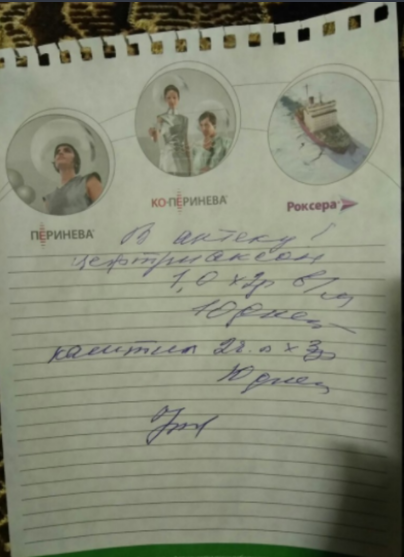 ПЕРИНЕВА®
КО-ПЕРИНЕВА®
Роксера®
В аптеку!
цефтриаксон
1,0 х 2р в/м
10 дней
2т. х 3р
10 дней